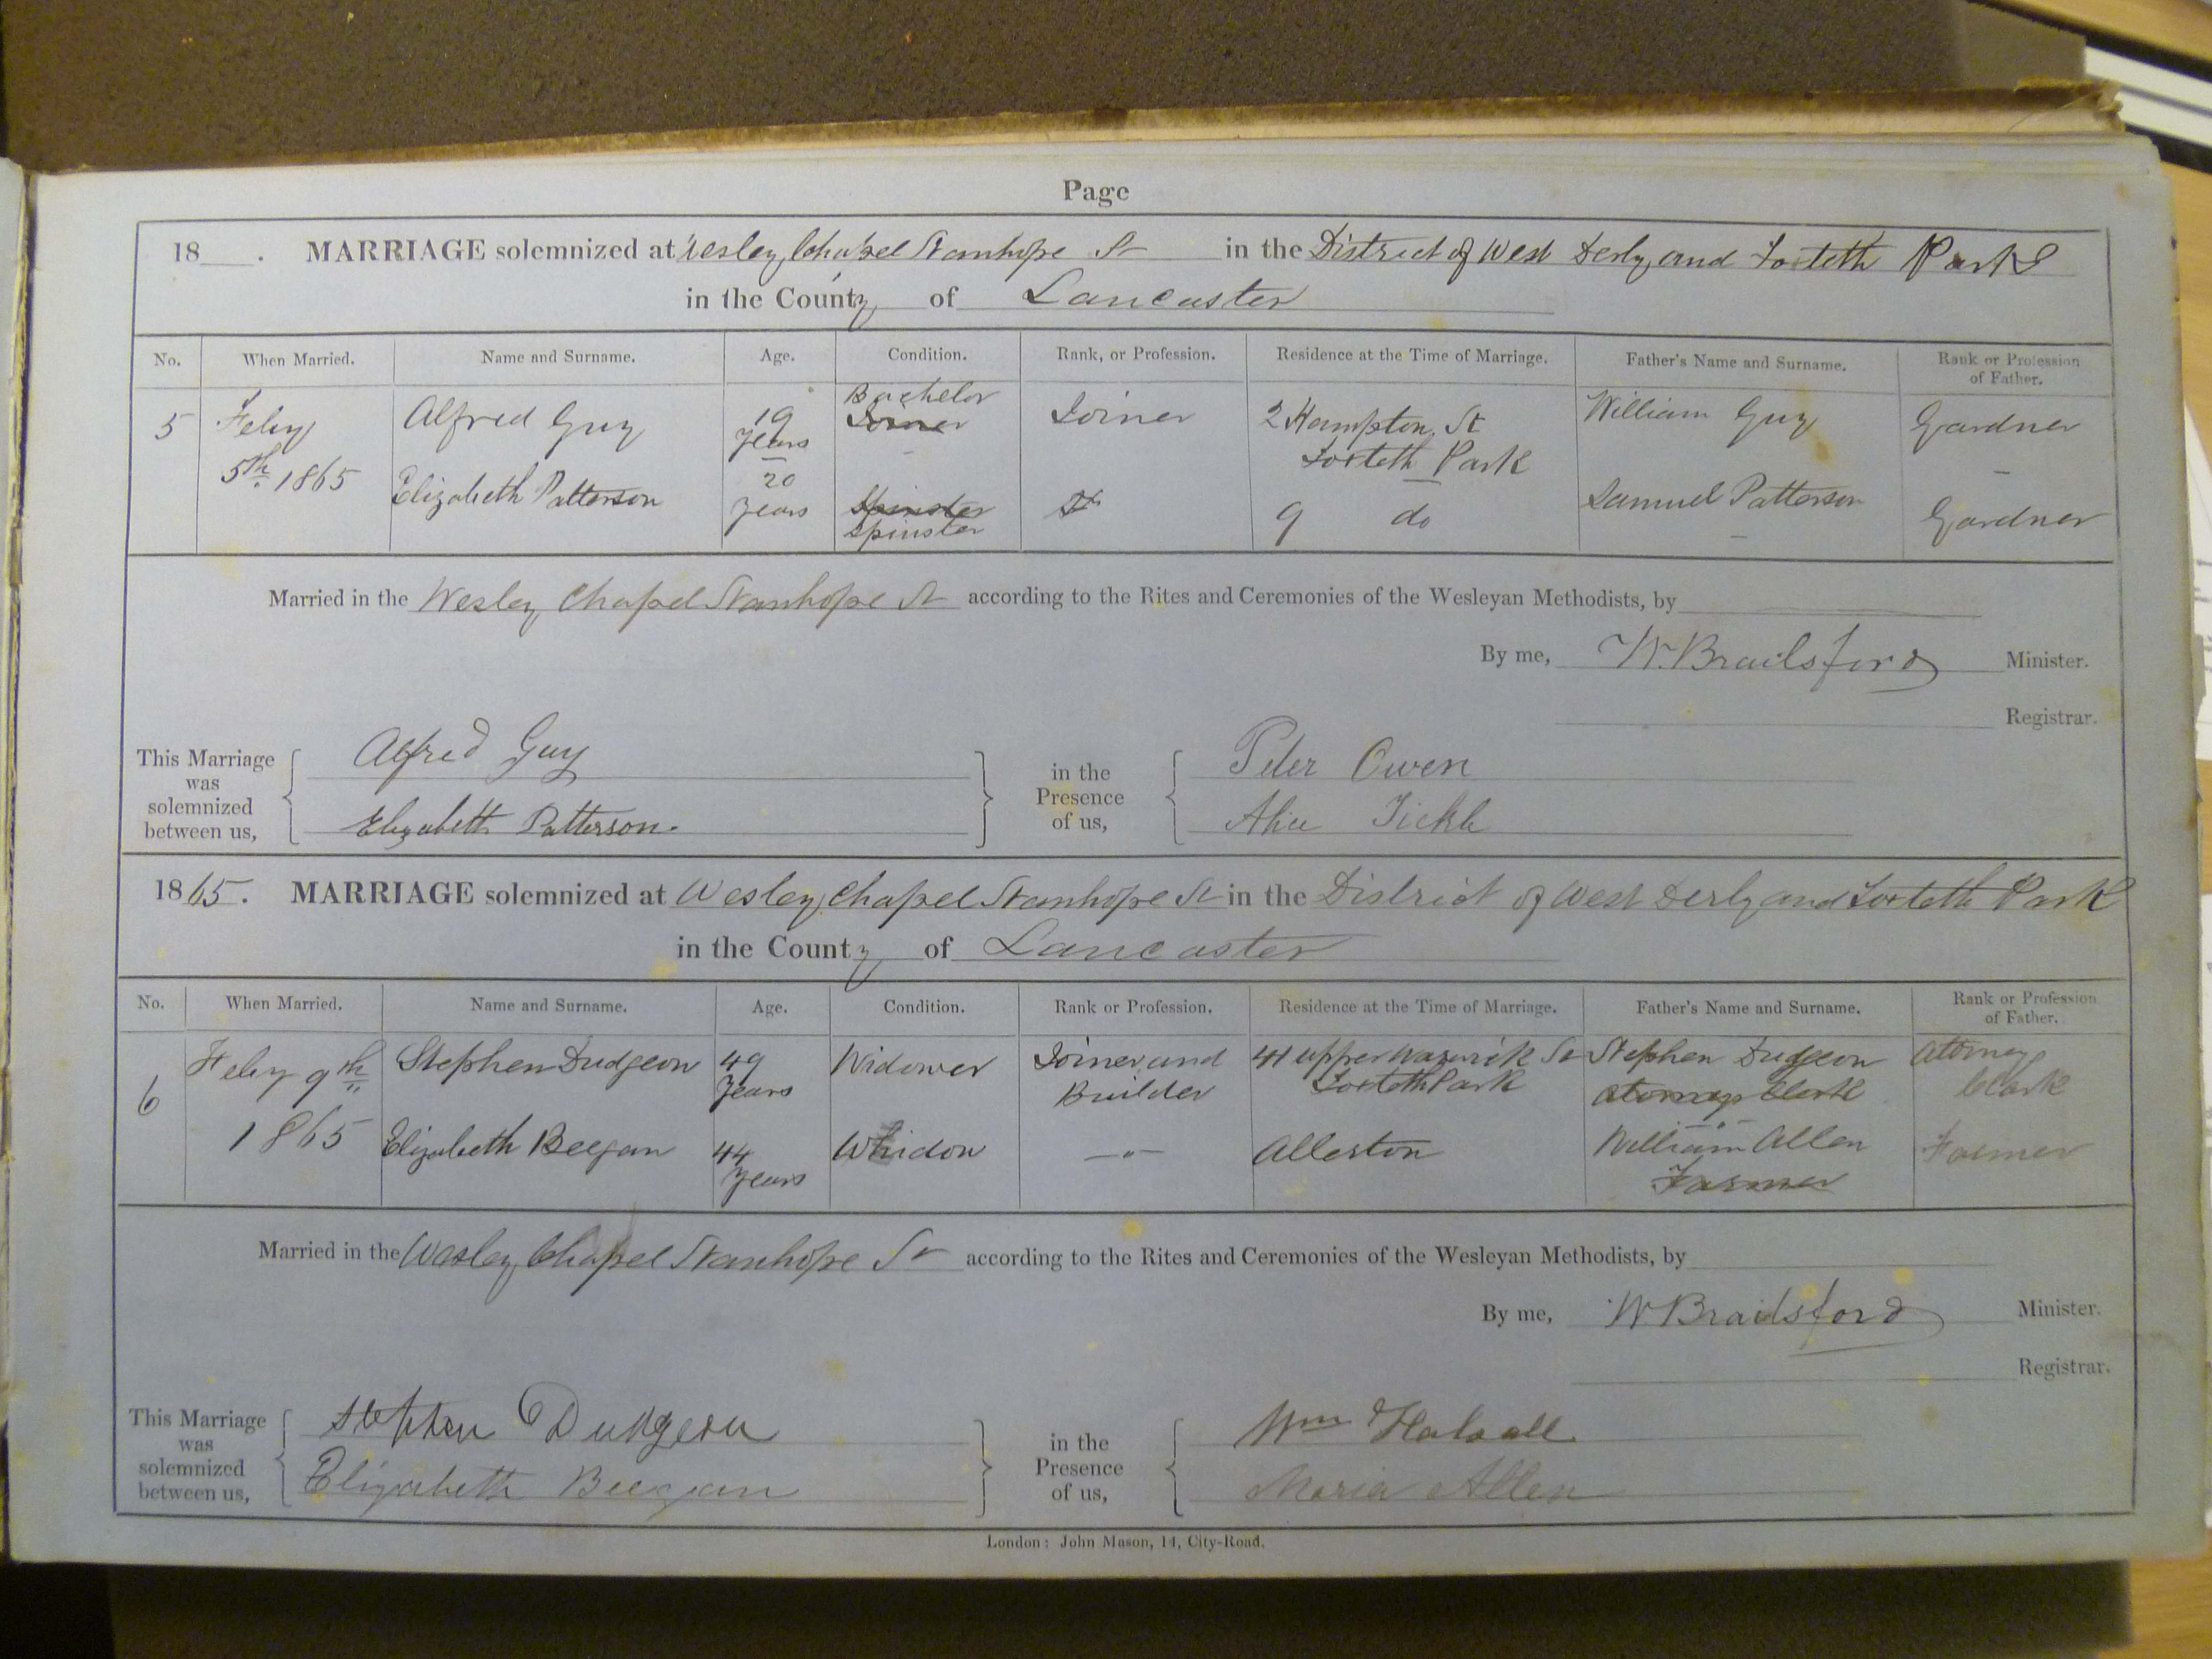 Page
18 . MARRIAGE solemnized at Wesley Chapel Stanhope St in the District of West Derby and Toxteth Park
in the County of Lancaster
No. When Married. Name and Surname. Age. Condition. Rank, or Profession. Residence at the Time of Marriage. Father's Name and Surname. Rank or Profession of Father.
5 Feby 5th 1865 Alfred Guy 19 Years Bachelor Joiner Joiner 2 Hampton St Toxteth Park William Guy Gardner
Elizabeth Patterson 20 Years Spinster Spinster 9 do Samuel Patterson Gardner
Married in the Wesley Chapel Stanhope St according to the Rites and Ceremonies of the Wesleyan Methodists, by
By me, W. Brailsford Minister.
Registrar.
This Marriage was solemnized between us, Alfred Guy
Elizabeth Patterson.
in the Presence of us, Peter Owen
Alice Tickle
1865. MARRIAGE solemnized at Wesley Chapel Stanhope St in the District of West Derby and Toxteth Park
in the County of Lancaster
No. When Married. Name and Surname. Age. Condition. Rank or Profession. Residence at the Time of Marriage. Father's Name and Surname. Rank or Profession of Father.
6 Feby 9th 1865 Stephen Dudgeon 49 Years Widower Joiner and Builder 41 upper Warwick St Toxteth Park Stephen Dudgeon Attorneys Clerk Attorney Clark
Elizabeth Beegan 44 Years Whidow —"— Allerton William Allen Farmer Farmer
Married in the Wesley Chapel Stanhope St according to the Rites and Ceremonies of the Wesleyan Methodists, by
By me, W Brailsford Minister.
Registrar.
This Marriage was solemnized between us, Stephen Dudgeon
Elizabeth Beegan
in the Presence of us, Wm Halsall
Maria Allen
London: John Mason, 14, City-Road.